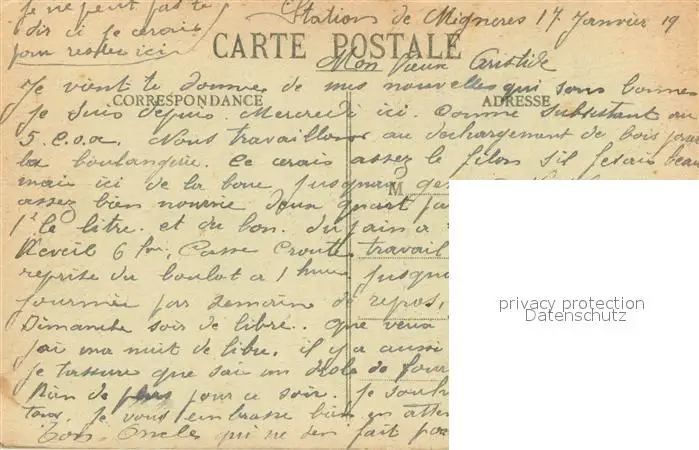 Je ne peut pas te
dir ci je cerais
pour rester ici
Station de Mignères 17 Janvier 19
CARTE POSTALE
Mon Vieux Aristide
Je vient te donner de mes nouvelles qui sons bonnes
CORRESPONDANCE ADRESSE
je suis depuis Mercredi ici. Comme Subsistant au
5. C.O.A. Nous travaillons au dechargement de bois pour
la boulangerie. Ce cerais assez le filon s'il fesais beau
mais ici de la boue jusquau
M
assez bien nourrie deux quart
le litre. et du bon. du pain a
Reveil 6 h, Casse Croute, travail
reprise du boulot a 1 heure jusqua
journée par Semaine de repos,
Dimanche soir de libre. que veux
jai ma nuit de libre. il y a aussi
je tassure que sai un drole de four
Rien de plus pour ce soir. Je souh
tous. Je vous embrasse bien en atten
Ton Oncle qui ne sen fait pas
privacy protection
Datenschutz